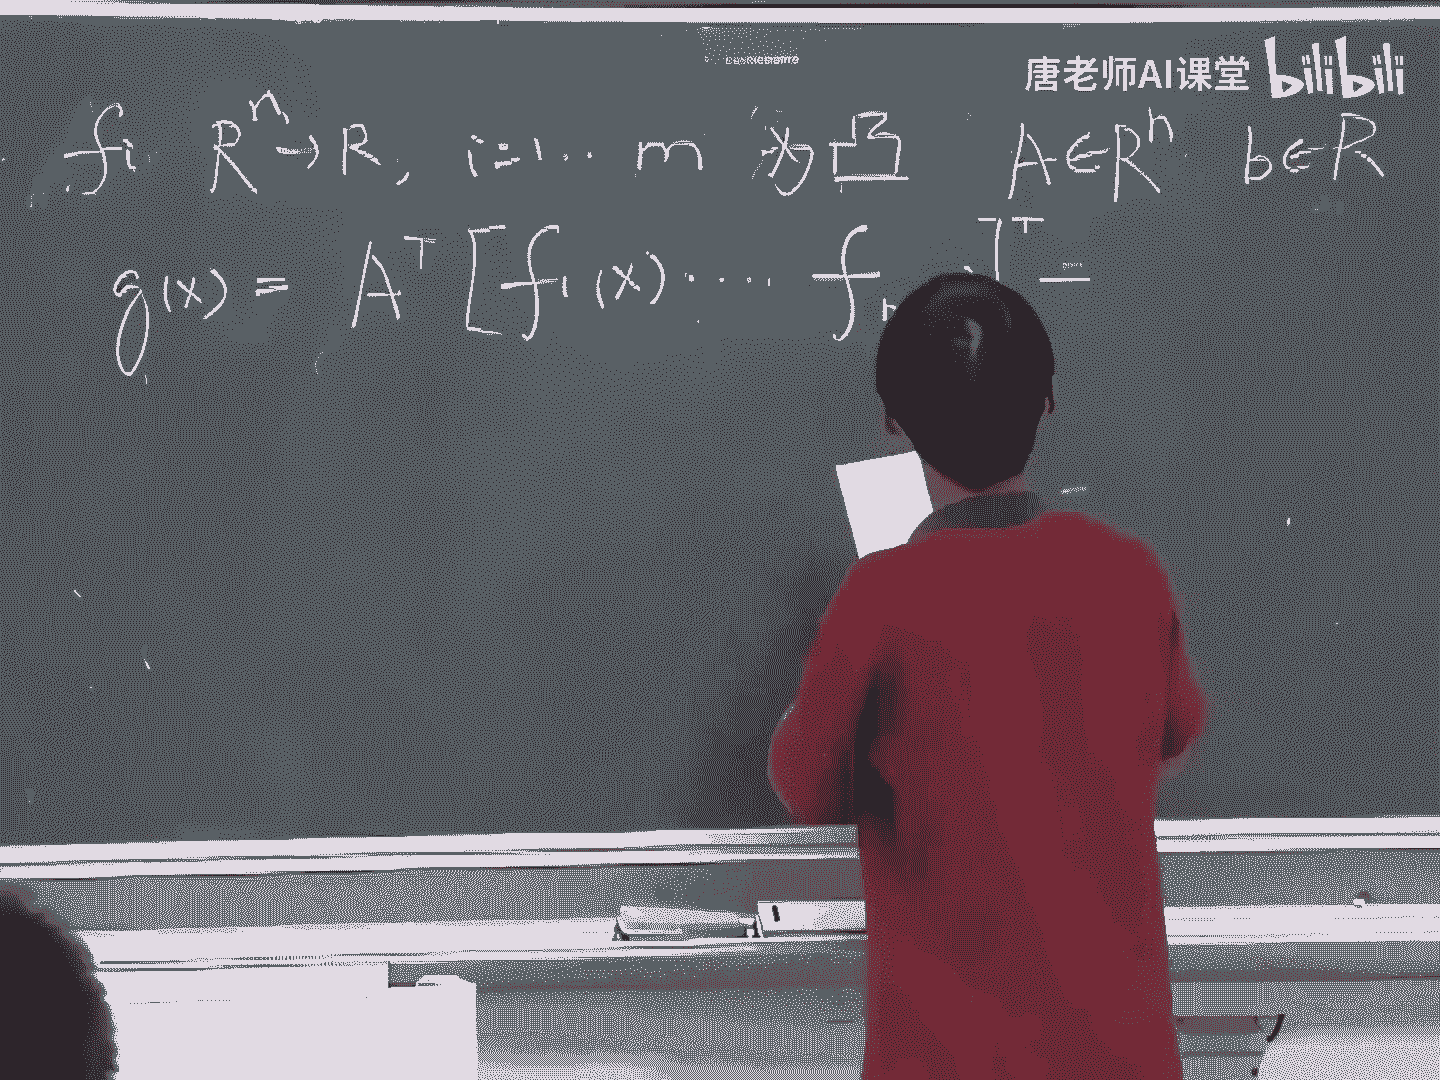 唐老师AI课堂 bilibili
fi Rⁿ→R, i=1... m 为凸 A∈Rⁿ b∈R
g(x) = Aᵀ [f₁(x).... f ]ᵀ —